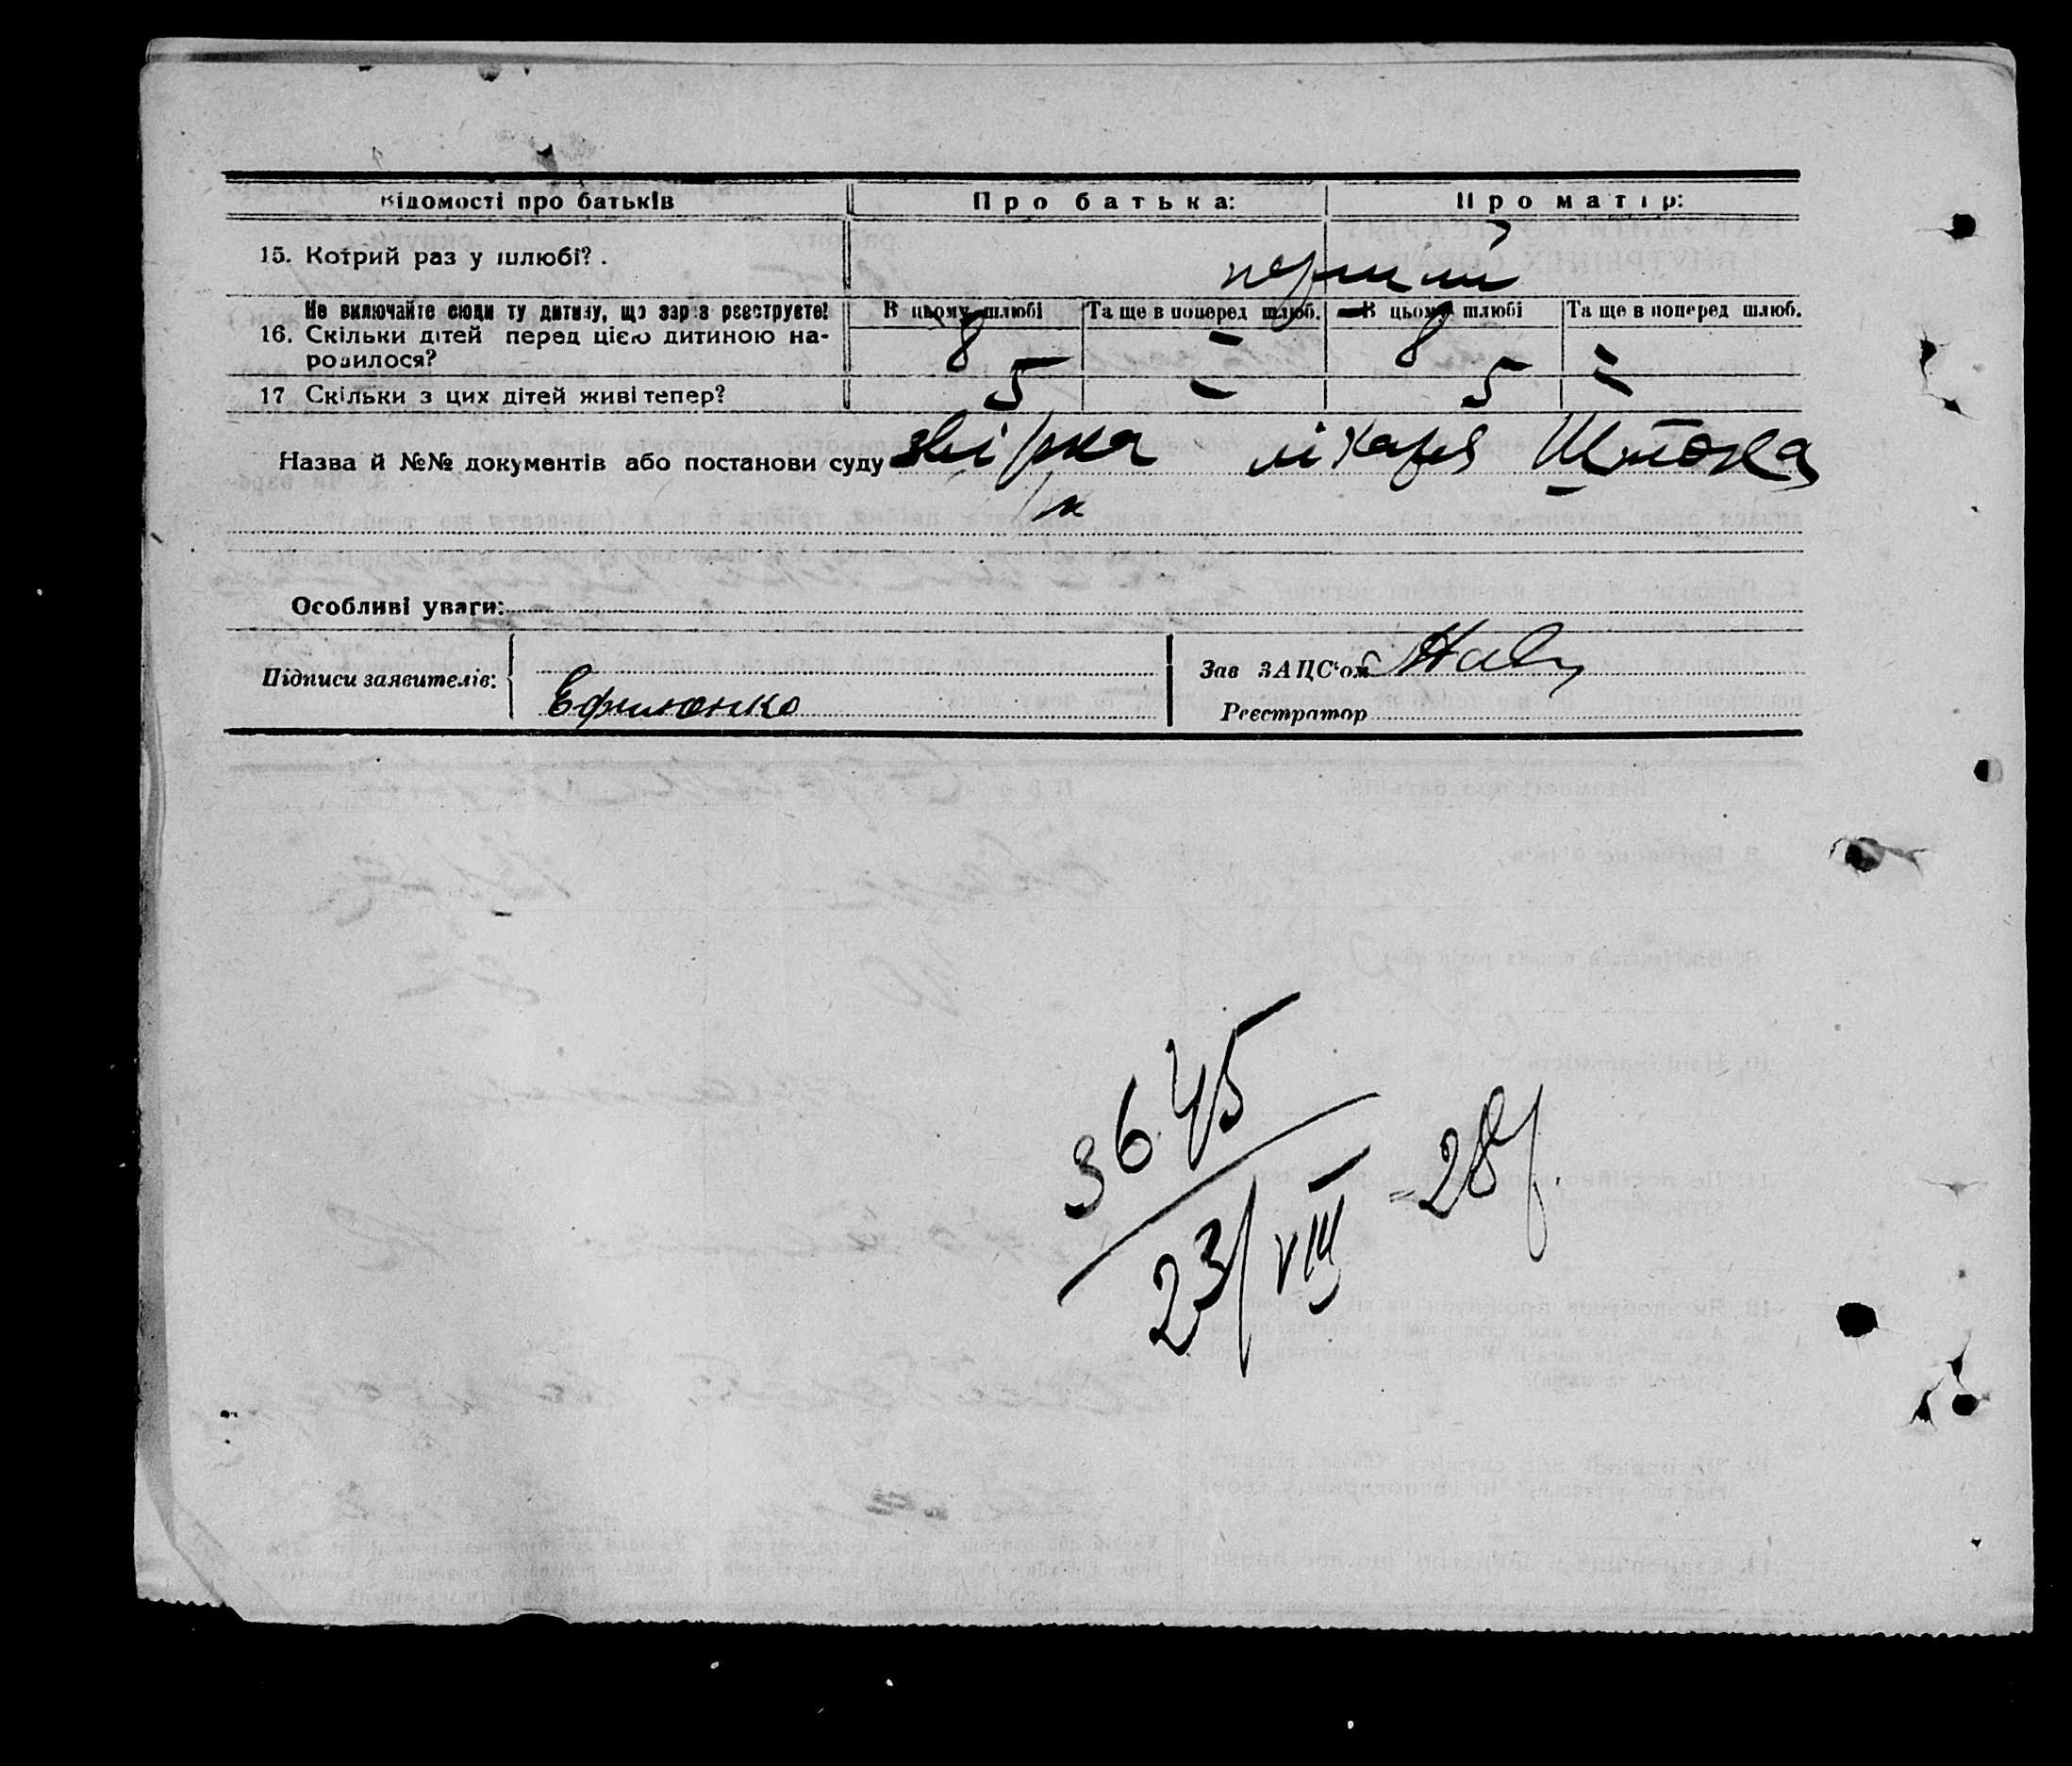 Відомості про батьків
Про батька:
Про матір:
15. Котрий раз у шлюбі?
перший
Не включайте сюди ту дитину, що зараз реєструєте!
В цьому шлюбі
Та ще в поперед шлюб.
В цьому шлюбі
Та ще в поперед шлюб.
16. Скільки дітей перед цією дитиною на-
родилося?
8 – 8 –
17 Скільки з цих дітей живі тепер?
5 – 5 –
Назва й №№ документів або постанови суду лікаря
Особливі уваги:
Підписи заявителів:
Зав ЗАЦС'ом
Реєстратор
3645
23/VIII-28р.